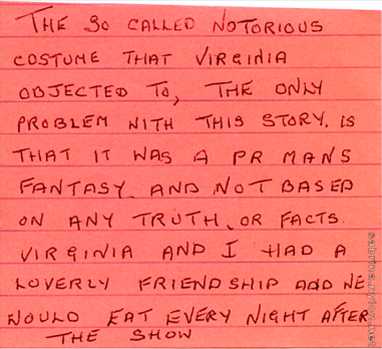 THE SO CALLED NOTORIOUS
COSTUME THAT VIRGINIA
OBJECTED TO, THE ONLY
PROBLEM WITH THIS STORY. IS
THAT IT WAS A PR MANS
FANTASY AND NOT BASED
ON ANY TRUTH, OR FACTS.
VIRGINIA AND I HAD A
LOVERLY FRIENDSHIP AND WE
WOULD EAT EVERY NIGHT AFTER
THE SHOW